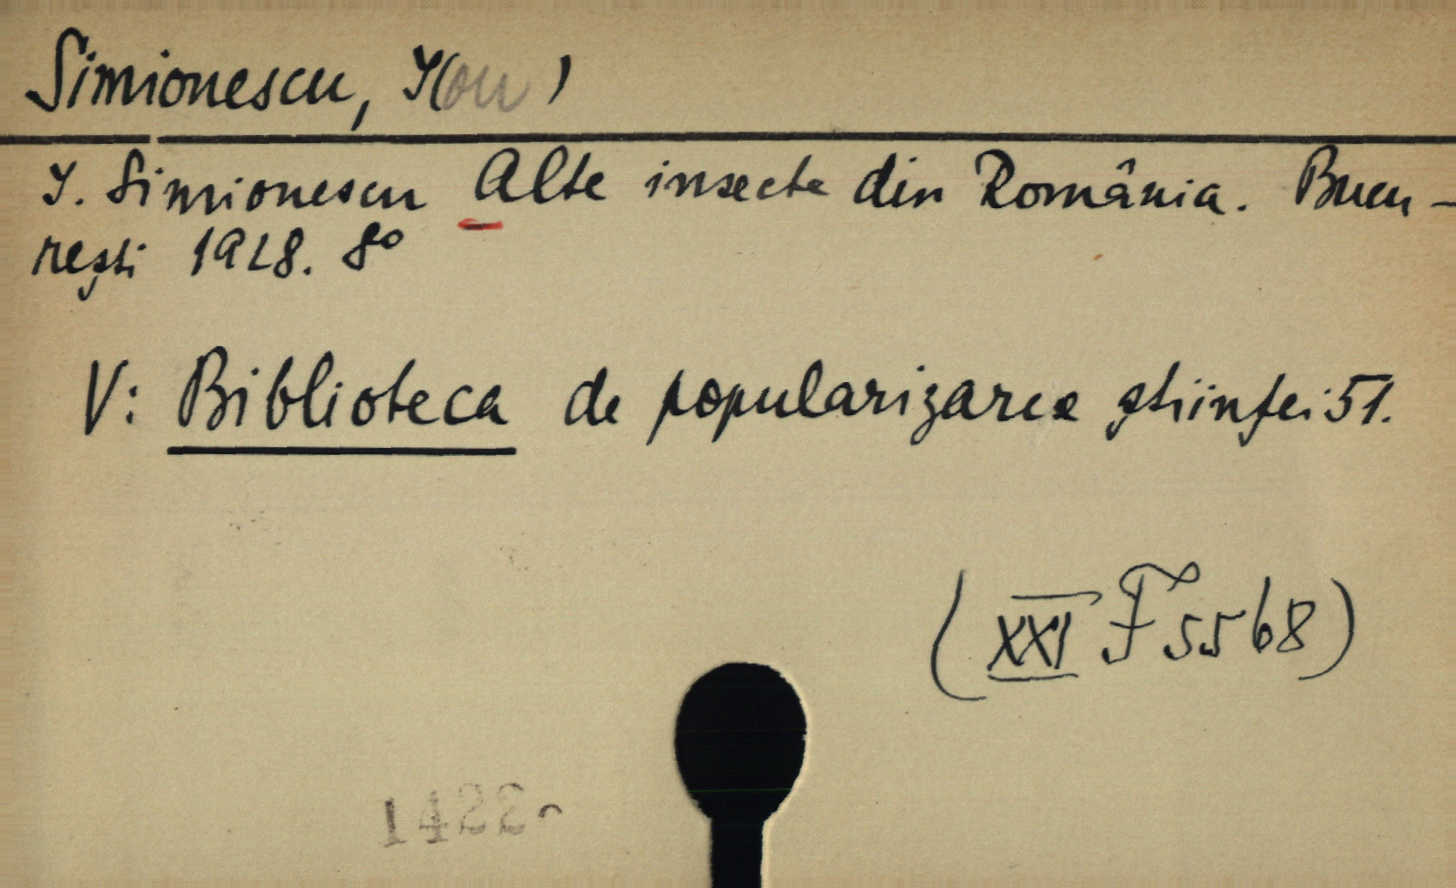 Simionescu, I(on)
I. Simionescu Alte insecte din România. Bucu-
rești 1928. 8º
V: Biblioteca de popularizarea științei 51.
(XXI F 5568)
1422